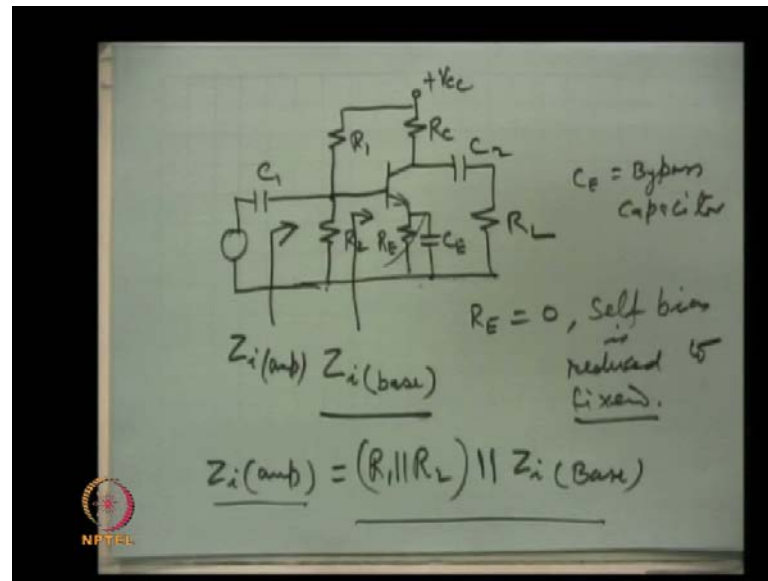 +Vcc
R1 Rc C2
C1
CE = Bypass
capacitor
R2 RE CE RL
RE = 0, Self bias
is
reduced to
fixed.
Zi(amp) Zi(base)
Zi(amp) = (R1||R2) || Zi (Base)
NPTEL